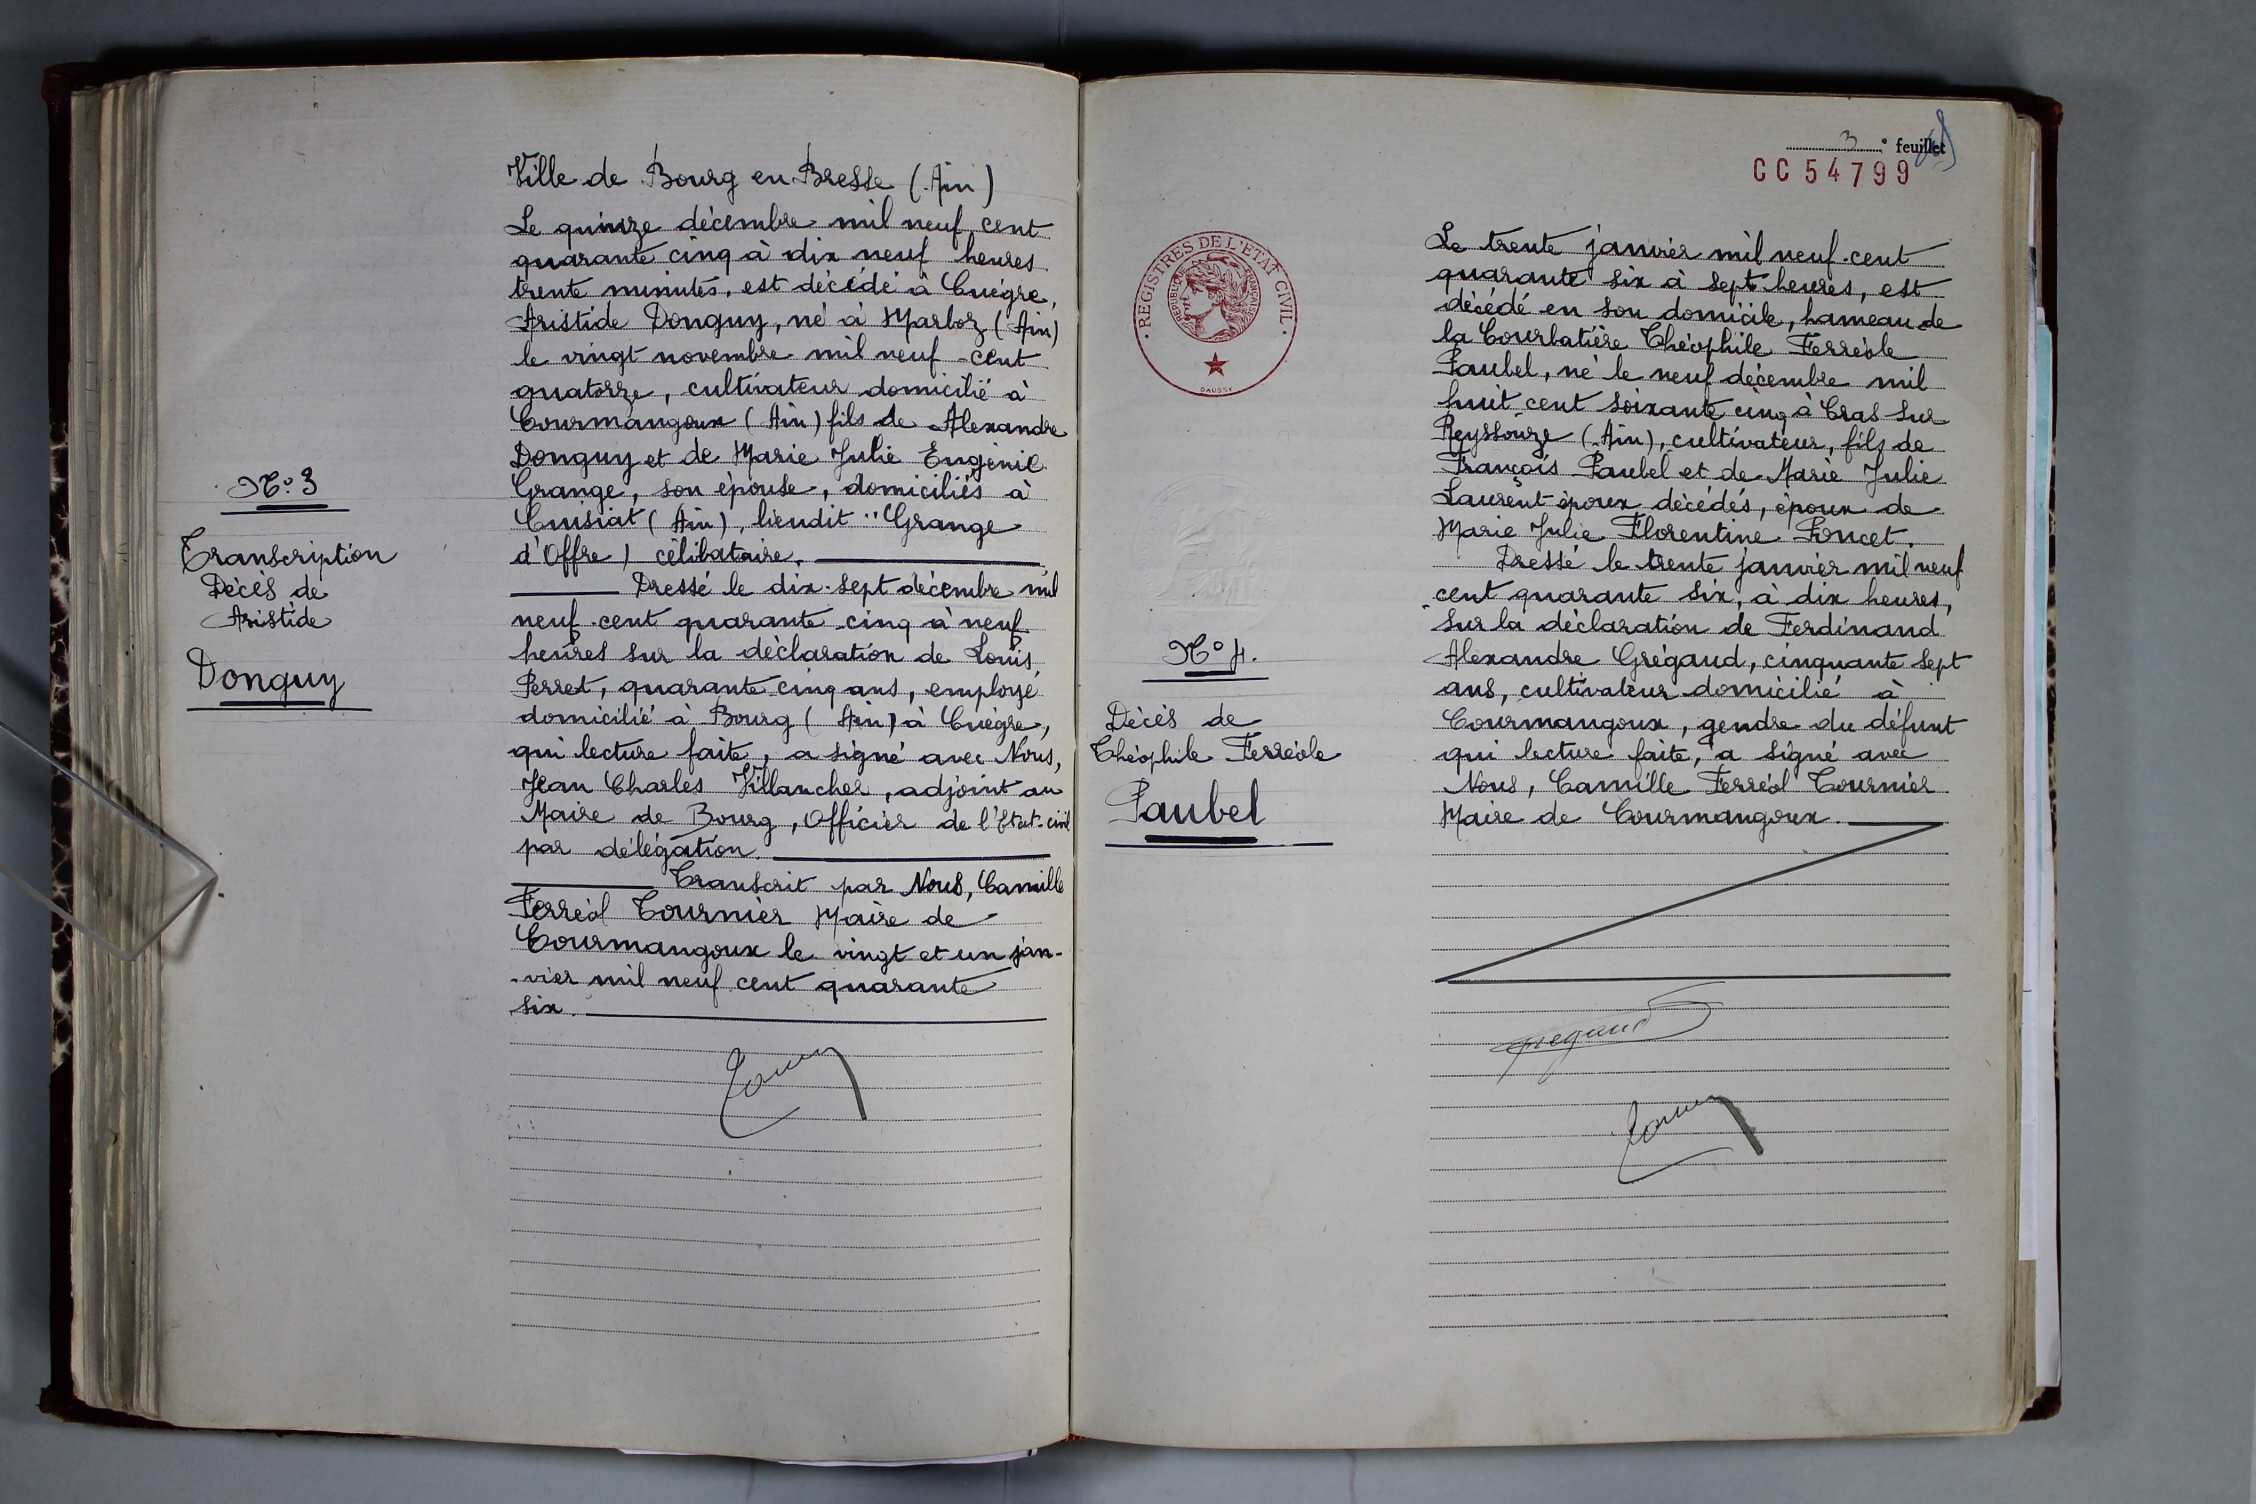 Ville de Bourg en Bresse (Ain)
Le quinze décembre mil neuf cent
quarante cinq à dix neuf heures
trente minutes, est décédé à Cuègre,
Aristide Donguy, né à Marboz (Ain)
le vingt novembre mil neuf-cent
quatorze, cultivateur domicilié à
Courmangoux (Ain) fils de Alexandre
Donguy et de Marie Julie Eugénie
Grange, son épouse, domiciliés à
Cuisiat (Ain), lieudit "Grange
d'Offre) célibataire.
Dressé le dix-sept décembre mil
neuf-cent quarante-cinq à neuf
heures sur la déclaration de Louis
Perret, quarante-cinq ans, employé
domicilié à Bourg (Ain) à Cuègre,
qui lecture faite, a signé avec Nous,
Jean Charles Villancher, adjoint au
Maire de Bourg, Officier de l'Etat-civil
par délégation.
Transcrit par Nous, Camille
Ferréol Tournier Maire de
Courmangoux le vingt et un jan-
-vier mil neuf cent quarante
six.
No. 3
Transcription
Décès de
Aristide
Donguy
3e feuillet
CC 54799
REGISTRES DE L'ETAT CIVIL
REPUBLIQUE FRANÇAISE
DAUSSY
No 4.
Décès de
Théophile Ferréole
Paubel
Le trente janvier mil neuf-cent
quarante six à sept heures, est
décédé en son domicile, hameau de
la Courbatière Théophile Ferréole
Paubel, né le neuf décembre mil
huit cent soixante cinq à Cras sur
Reyssouze (Ain), cultivateur, fils de
François Paubel et de Marie Julie
Laurent époux décédés, époux de
Marie Julie Florentine Poncet.
Dressé le trente janvier mil neuf
cent quarante six, à dix heures,
sur la déclaration de Ferdinand
Alexandre Grégaud, cinquante sept
ans, cultivateur domicilié à
Courmangoux, gendre du défunt
qui lecture faite, a signé avec
Nous, Camille Ferréol Tournier
Maire de Courmangoux.
Gregaud